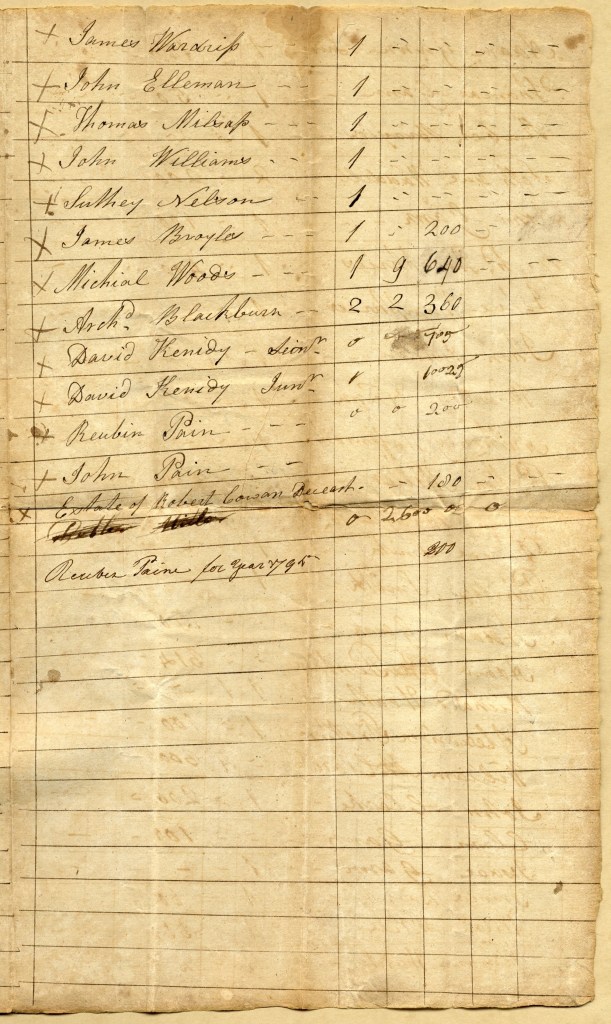 + James Wardrip - - 1 - - - -
+ John Elleman - - 1 - - - -
+ Thomas Milsap - - 1 - - - -
+ John Williams - - 1 - - - -
+ Suthey Nelson - 1 - - - -
+ James Broyles - - 1 - 200 - -
+ Michial Woods - - - 1 9 640 - -
+ Archd. Blackburn - - 2 2 360 - -
+ David Kenidy - Seionr. 0
+ David Kenidy Junr.
+ Reubin Pain - - 0 0 200
+ John Pain - - -
+ Estate of Robert Cowan Deceast. - - 180 - -
0 2600 0 0
Reuben Paine for year 1795 200